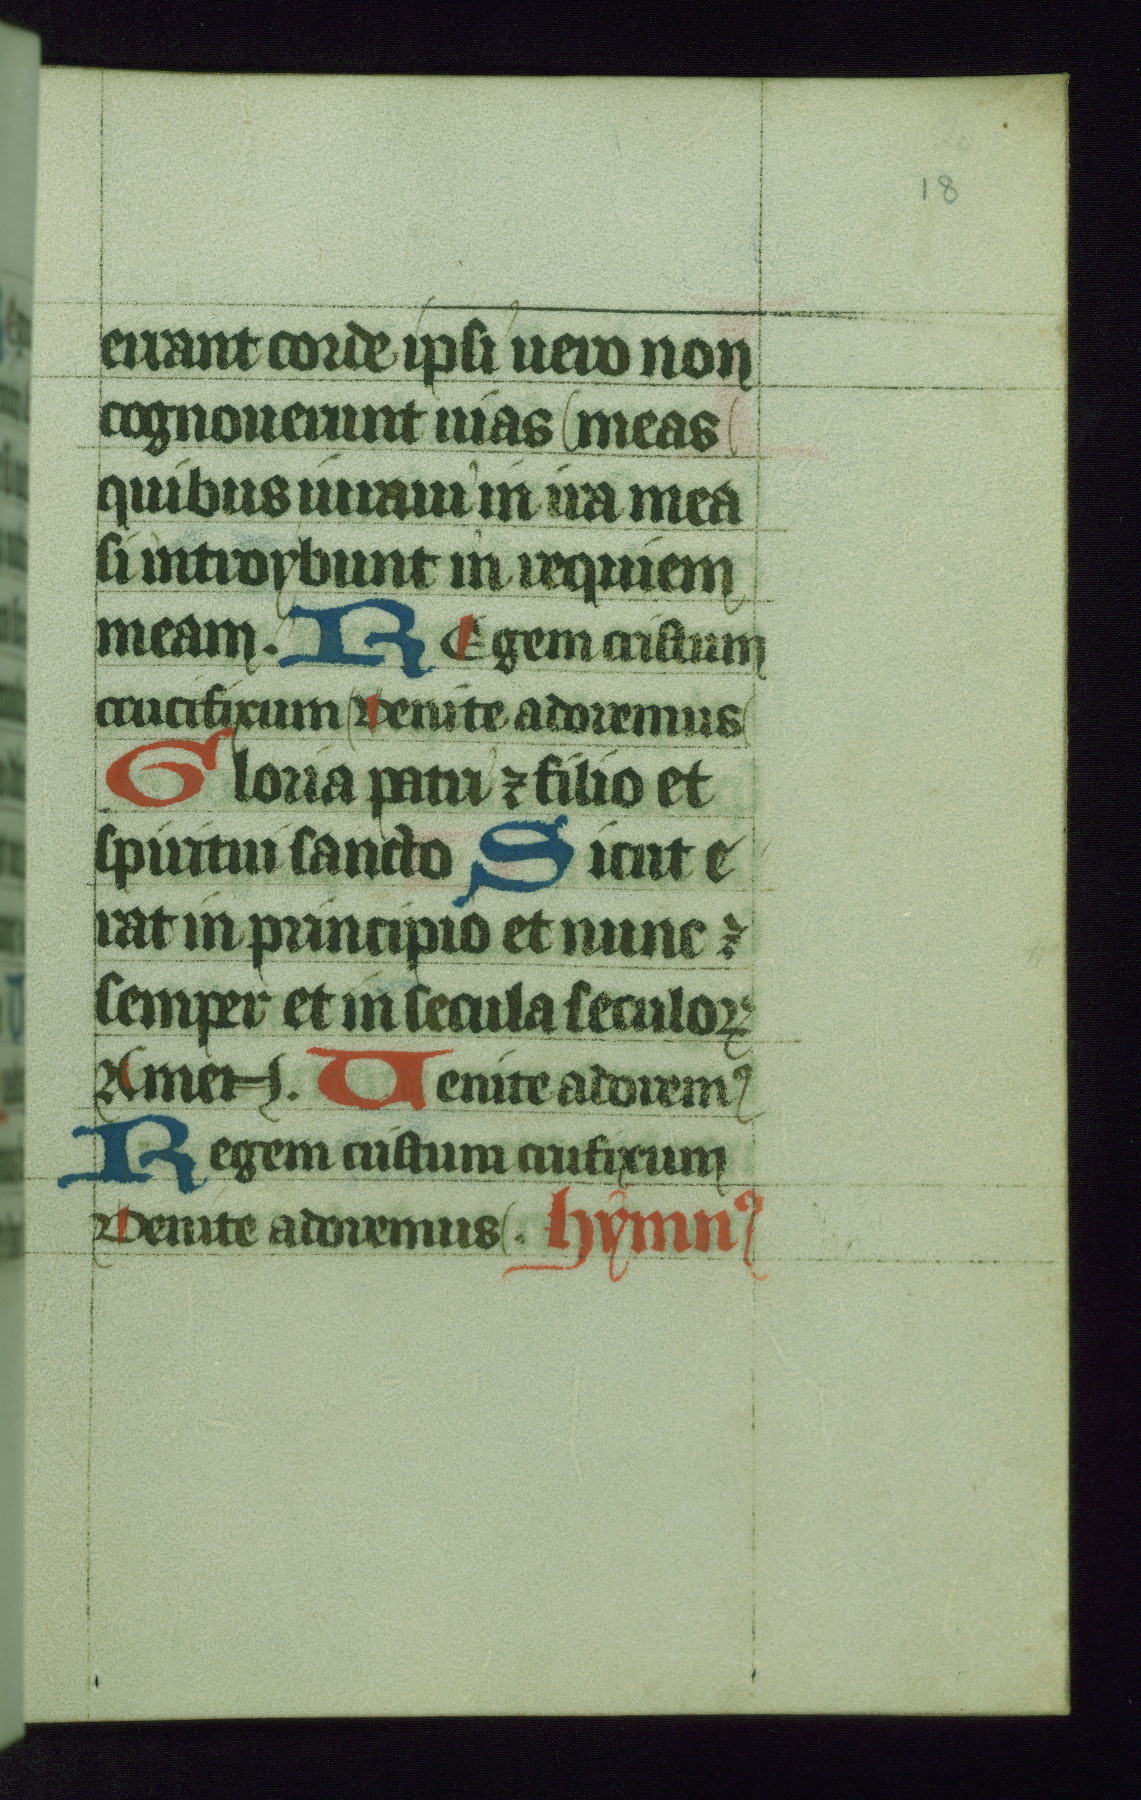 18
errant corde ipsi uero non
cognouerunt uias meas
quibus iuraui in ira mea
si introybunt in requiem
meam. REgem cristum
crucifixum Venite adoremus
Gloria patri ⁊ filio et
spiritui sancto Sicut e
rat in principio et nunc ⁊
semper et in secula seculoꝝ
Amen. Uenite adoremꝰ
Regem cristum crufixum
Venite adoremus. hymnꝰ